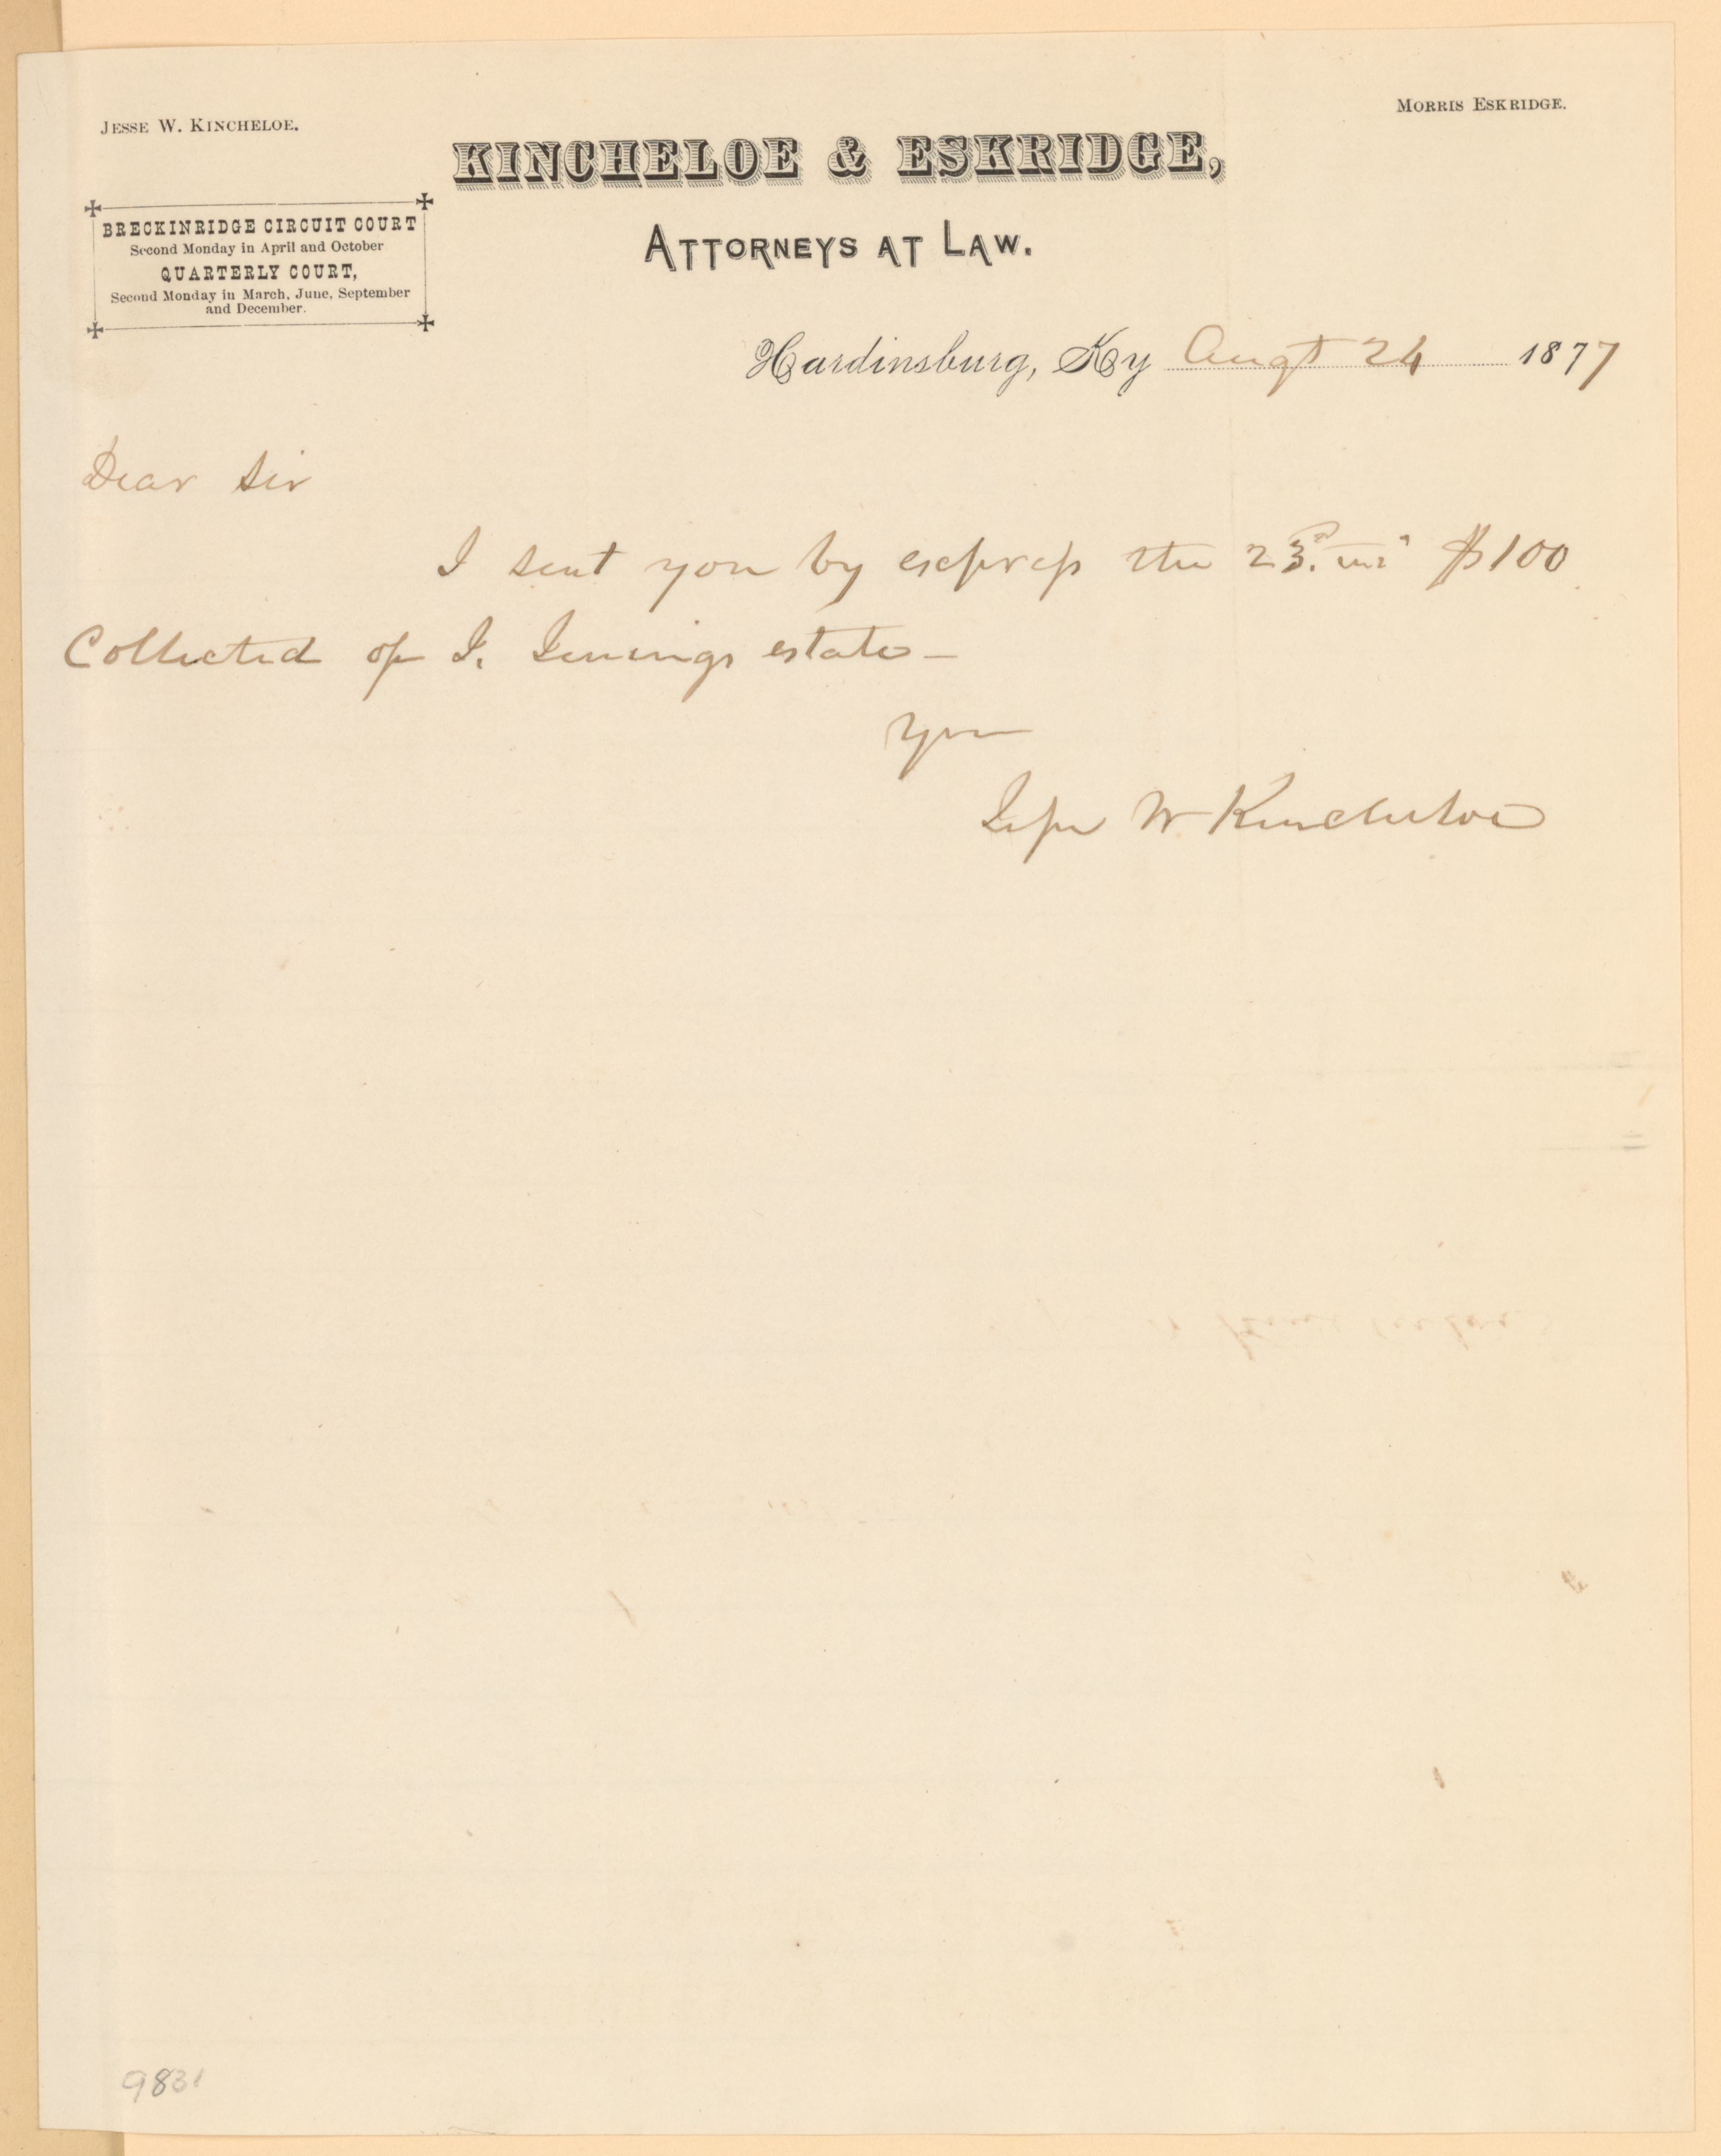 JESSE W. KINCHELOE.
MORRIS ESKRIDGE.
KINCHELOE & ESKRIDGE,
ATTORNEYS AT LAW.
BRECKINRIDGE CIRCUIT COURT
Second Monday in April and October
QUARTERLY COURT,
Second Monday in March, June, September
and December.
Hardinsburg, Ky Augt 24 1877
Dear Sir
I sent you by express the 23rd inst $100
Collected of J. Jennings estate -
Yrs
Jesse W Kincheloe
9831